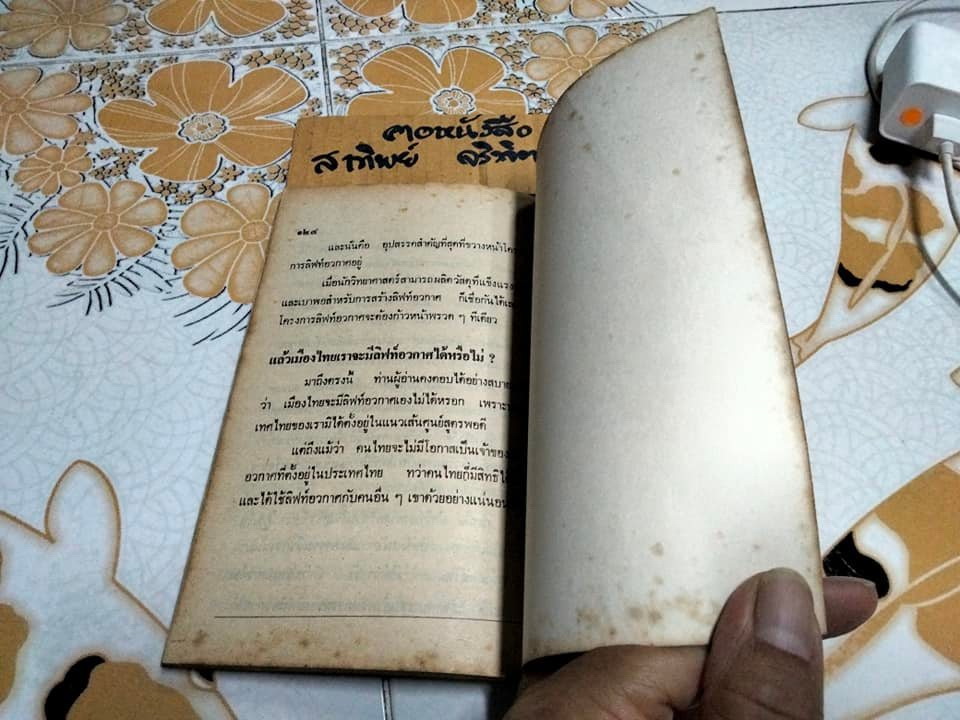 คอหนังสือ
สาทิพย์
๑๒๘
และนั่นคือ อุปสรรคสำคัญที่สุดที่ขวางหน้า
การลิฟท์อวกาศอยู่
เมื่อนักวิทยาศาสตร์สามารถผลิตวัสดุที่แข็งแรง
และเบาพอสำหรับการสร้างลิฟท์อวกาศ ก็เชื่อกันได้
โครงการลิฟท์อวกาศจะต้องก้าวหน้าพรวด ๆ ทีเดียว
แล้วเมืองไทยเราจะมีลิฟท์อวกาศได้หรือไม่ ?
มาถึงตรงนี้ ท่านผู้อ่านคงตอบได้อย่าง
ว่า เมืองไทยจะมีลิฟท์อวกาศเองไม่ได้หรอก เพราะ
เทศไทยของเรามิได้ตั้งอยู่ในแนวเส้นศูนย์สูตรพอดี
แต่ถึงแม้ว่า คนไทยจะไม่มีโอกาสเป็นเจ้าของ
อวกาศที่ตั้งอยู่ในประเทศไทย ทว่าคนไทยก็มีสิทธิ
และได้ใช้ลิฟท์อวกาศกับคนอื่น ๆ เขาด้วยอย่างแน่นอน